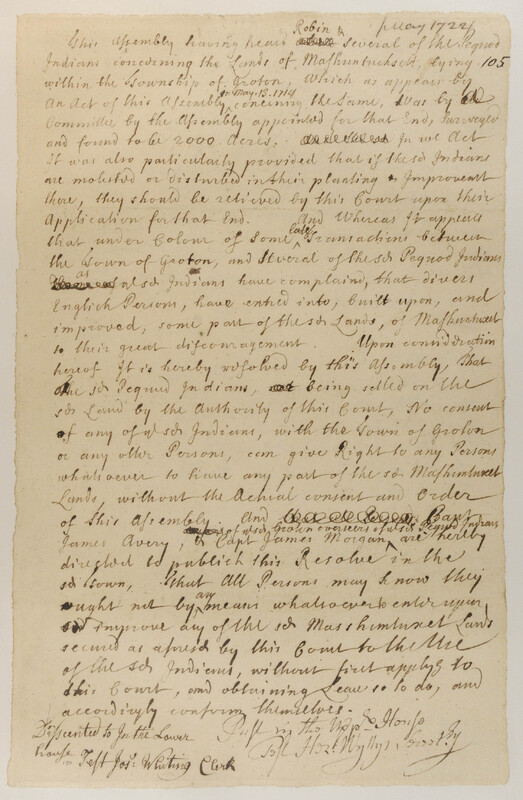 May 1722
This Assembly having heard Robin & several of the Pequod
Indians concerning the Lands of Mashuntuckset, lying 105
within the Township of Groton, Which as appears by
An Act of this Assembly in May. 13. 1714 concerning the Same, Was by
Committee by the Assembly appointed for that End, Surveyed
and found to be 2000 Acres. In wc Act
It was also particularly provided that if the sd Indians
are molested or disturbed in their planting & Improvemt
there, they should be relieved by this Court upon their
Application for that End. And Whereas It appears
that under Colour of some late Transactions between
the Town of Groton, and Several of the sd Pequod Indians
as sd Indians have complaind, that divers
English Persons, have entred into, built upon, and
improved, some part of the sd Lands, of Mashuntuxet
to their great discouragement. Upon consideration
hereof It is hereby resolved by this Assembly, That
the sd Pequod Indians, being setled on the
sd Land by the Authority of this Court, No consent
of any of ye sd Indians, with the Town of Groton
or any other Persons, can give Right to any Persons
whatsoever to have any part of the sd Mashuntuxet
Lands, without the Actual consent and Order
of this Assembly And Capt
James Avery, & Capt James Morgan of sd Groton overseers of sd Pequod Indians are hereby
directed to publish this Resolve in the
sd Town, that All Persons may know they
ought not by any means whatsoever to enter upon
improve any of the sd Masshuntuxet Lands
secured as aforesd by this Court to the Use
of the sd Indians, without first applyg to
this Court, and obtaining Leave so to do, and
accordingly conform themselves.
Past in the Uppr House
Test Hez: Wyllys Secretry
Dissented to In the Lower
house Test Jos: Whiting Clerk